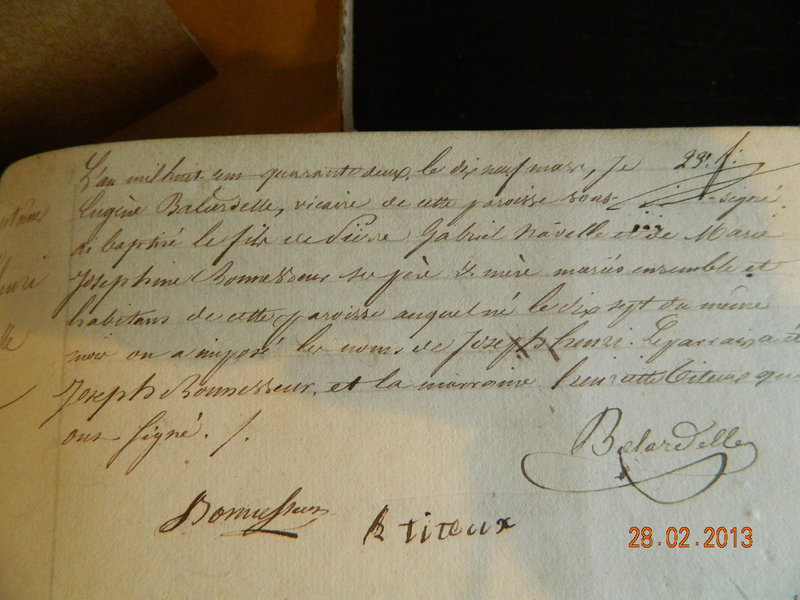 L'an mil huit cent quarante deux, le dix neuf mars, je 23. f.
Eugène Balardelle, vicaire de cette paroisse sous-signé
ai baptisé le fils de Pierre Gabriel Navelle et de Marie
Josephine Bonnesseur ses père & mère mariés ensemble et
habitans de cette paroisse auquel né le dix sept du même
mois on a imposé les noms de Joseph henri. Le parrain a été
Joseph Bonnesseur. et la marraine henriette Titeux qui
ont signé. /.
Balardelle
Bonnesseur
h titeux
28.02.2013